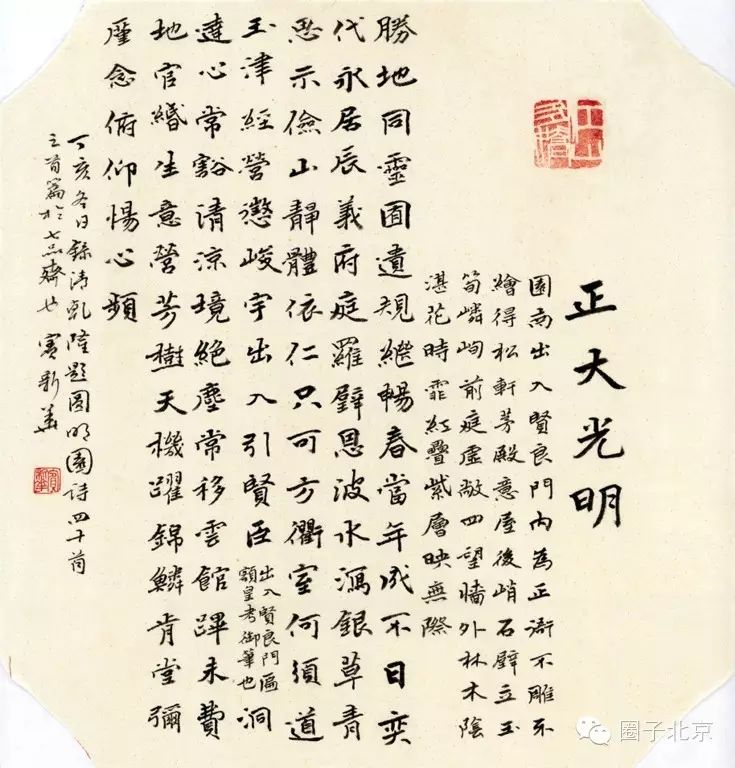 正大光明
園南出入賢良門內為正衙不雕不
繪得松軒茅殿意屋後峭石壁立玉
筍嶙峋前庭虛敞四望牆外林木陰
湛花時霏紅疊紫層映無際
勝地同靈囿遺規繼暢春當年成不日奕
代永居辰義府庭羅璧恩波水瀉銀草青
思示儉山靜體依仁只可方衢室何須道
玉津經營懲峻宇出入引賢臣出入賢良門匾額皇考御筆也洞
達心常豁清涼境絕塵常移雲館蹕未費
地官緡生意營芳樹天機躍錦鱗肯堂彌
廑念俯仰惕心頻
丁亥冬日錄清乾隆題圓明園詩四十首
之首篇於七品齋也
圈子北京